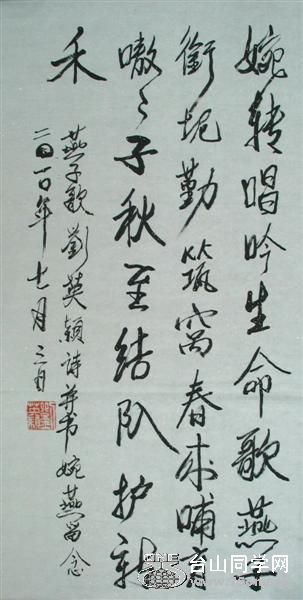 婉转唱吟生命歌燕
銜坭勤筑窝春来哺育
嗷〻子秋至结队护新
禾
燕子歌 劉英颖诗并书 婉燕留念
二〇一〇年十一月三日
台山同学网